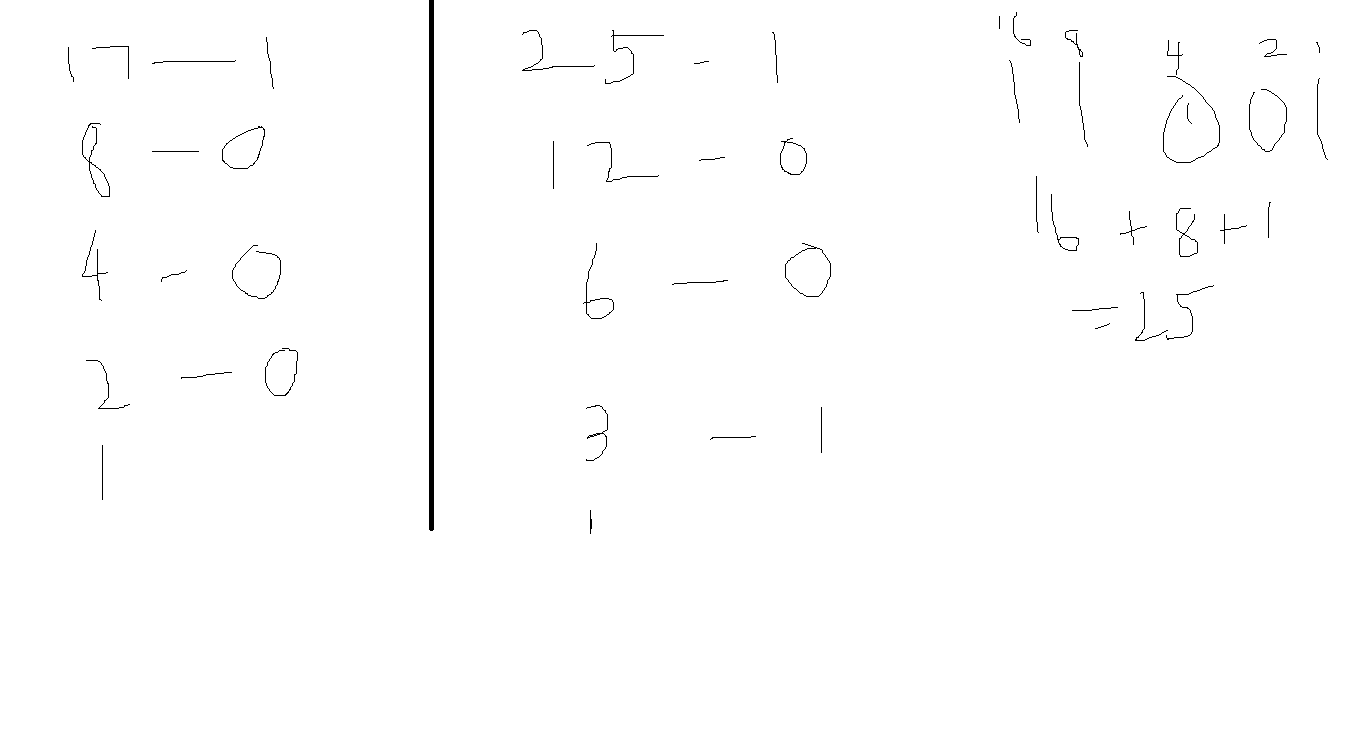 17 — 1
8 — 0
4 - 0
2 — 0
1
25 - 1
12 - 0
6 — 0
3 — 1
1
16 8 4 2 1
1 1 0 0 1
16 + 8 + 1
= 25